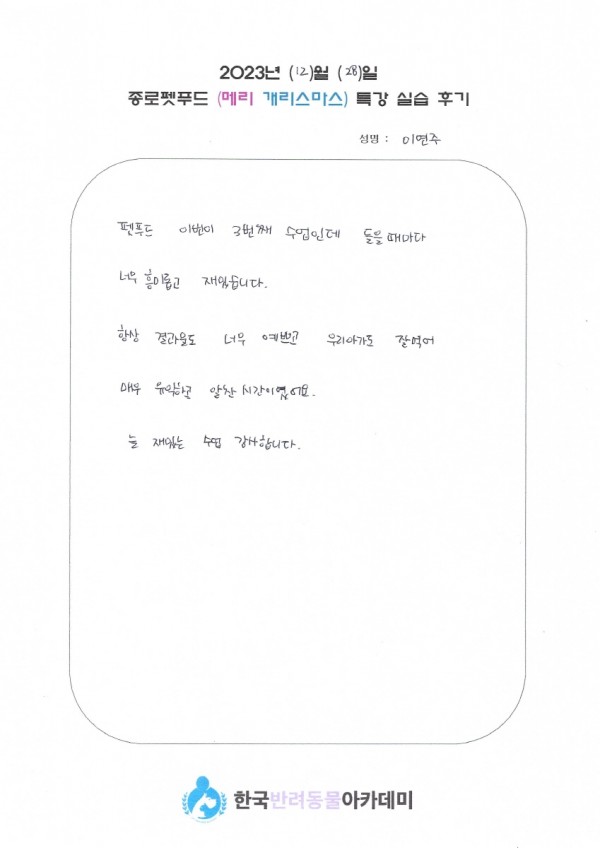 2023년 (12)월 (28)일
종로펫푸드 (메리 개리스마스) 특강 실습 후기
성명 : 이연주
펫푸드 이번이 3번째 수업인데 들을때마다
너무 흥미롭고 재밌습니다.
항상 결과물도 너무 예쁘고 우리아가도 잘먹어
매우 유익하고 알찬 시간이였어요.
늘 재밌는 수업 감사합니다.
한국반려동물아카데미